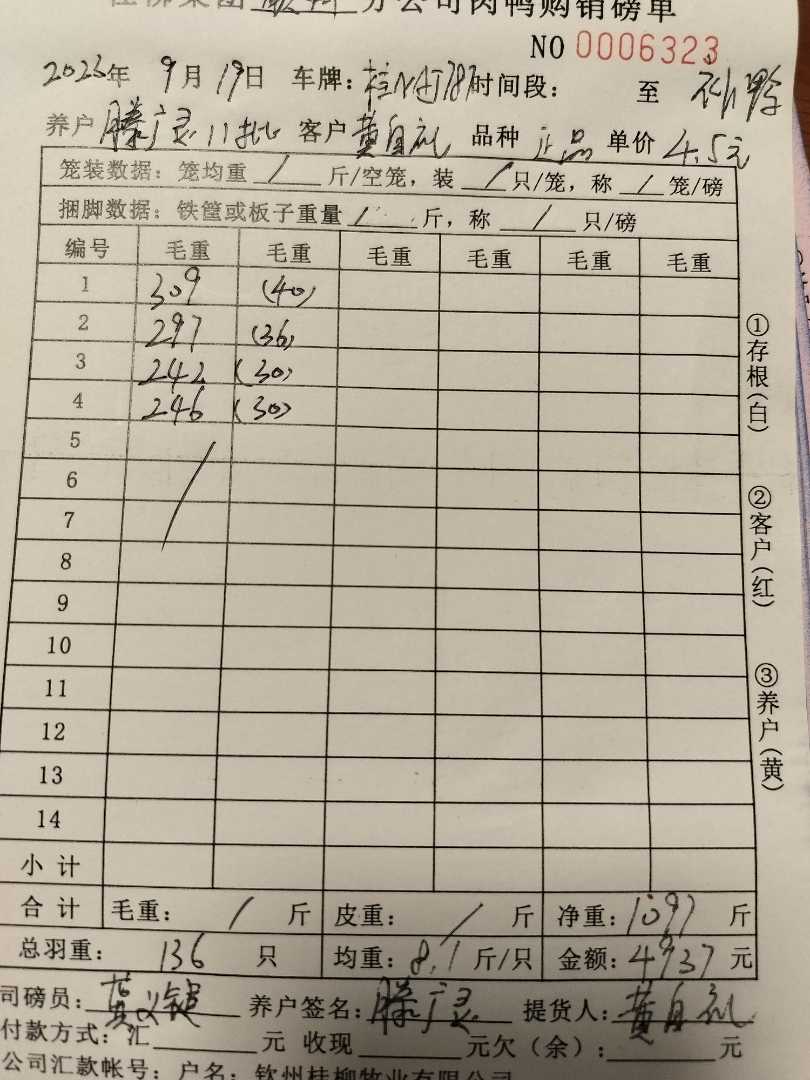 分公司肉鸭购销磅单
NO 0006323
2023年 9月19日 车牌: 时间段: 至
养户 滕广灵 11批 客户 黄自礼 品种 正品 单价 4.5元
笼装数据: 笼均重 / 斤/空笼, 装 / 只/笼, 称 / 笼/磅
捆脚数据: 铁筐或板子重量 / 斤, 称 / 只/磅
编号 毛重 毛重 毛重 毛重 毛重 毛重
1 309 (40)
2 297 (36)
3 242 (30)
4 246 (30)
5
6
7
8
9
10
11
12
13
14
小计
合计 毛重: / 斤 皮重: / 斤 净重: 1097 斤
总羽重: 136 只 均重: 8.1 斤/只 金额: 4937 元
司磅员: 黄 养户签名: 滕广灵 提货人: 黄自礼
付款方式: 汇 元 收现 元欠(余): 元
公司汇款帐号: 户名: 钦州桂柳牧业有限公司
①存根(白)
②客户(红)
③养户(黄)